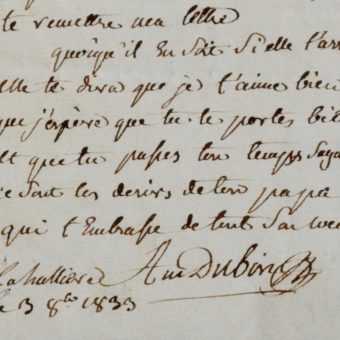 te remettre ma lettre
quoiqu'il En soit Si elle t'arr
elle te dira que je t'aime bien
que j'espère que tu te portes bi
et que tu passes ton temps Saga
ce sont les desirs de ton papa
qui t'Embrasse de tout Son
Am Dubin
le 3 8bre 1833